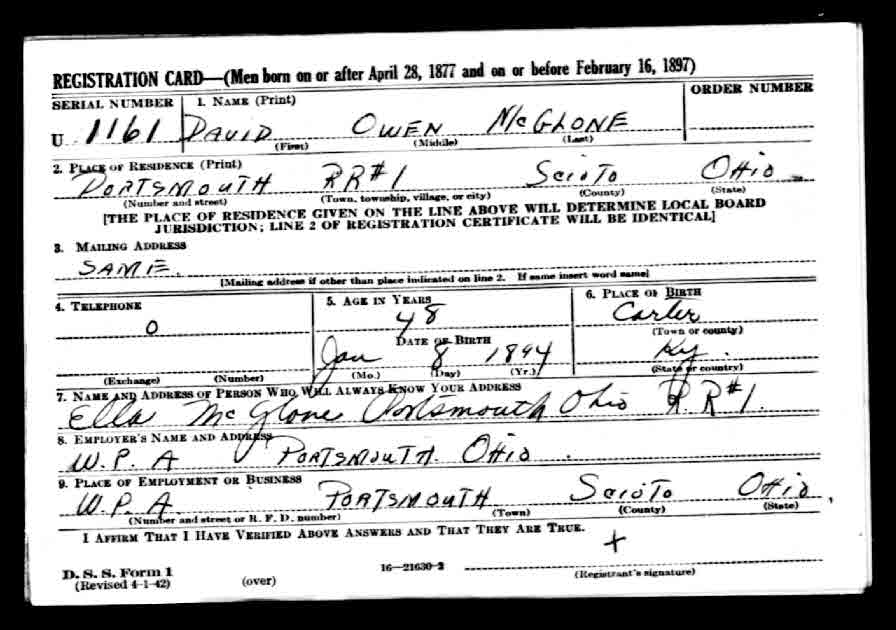 REGISTRATION CARD—(Men born on or after April 28, 1877 and on or before February 16, 1897)
SERIAL NUMBER 1. NAME (Print) ORDER NUMBER
U 1161 DAVID OWEN McGLONE
(First) (Middle) (Last)
2. PLACE OF RESIDENCE (Print)
PORTSMOUTH RR#1 Scioto OHio
(Number and street) (Town, township, village, or city) (County) (State)
[THE PLACE OF RESIDENCE GIVEN ON THE LINE ABOVE WILL DETERMINE LOCAL BOARD
JURISDICTION; LINE 2 OF REGISTRATION CERTIFICATE WILL BE IDENTICAL]
3. MAILING ADDRESS
SAME.
[Mailing address if other than place indicated on line 2. If same insert word same]
4. TELEPHONE 5. AGE IN YEARS 6. PLACE OF BIRTH
0 48 Carter
(Town or county)
DATE OF BIRTH
Jan 8 1894 Ky.
(Exchange) (Number) (Mo.) (Day) (Yr.) (State or country)
7. NAME AND ADDRESS OF PERSON WHO WILL ALWAYS KNOW YOUR ADDRESS
Ella McGlone Portsmouth Ohio R.R#1.
8. EMPLOYER'S NAME AND ADDRESS
W. P. A PORTSMOUTH. OHio.
9. PLACE OF EMPLOYMENT OR BUSINESS
W. P. A PORTSMOUTH Scioto OHio,
(Number and street or R. F. D. number) (Town) (County) (State)
I AFFIRM THAT I HAVE VERIFIED ABOVE ANSWERS AND THAT THEY ARE TRUE.
+
D. S. S. Form 1
(Revised 4-1-42) (over) 16—21630-2 (Registrant's signature)